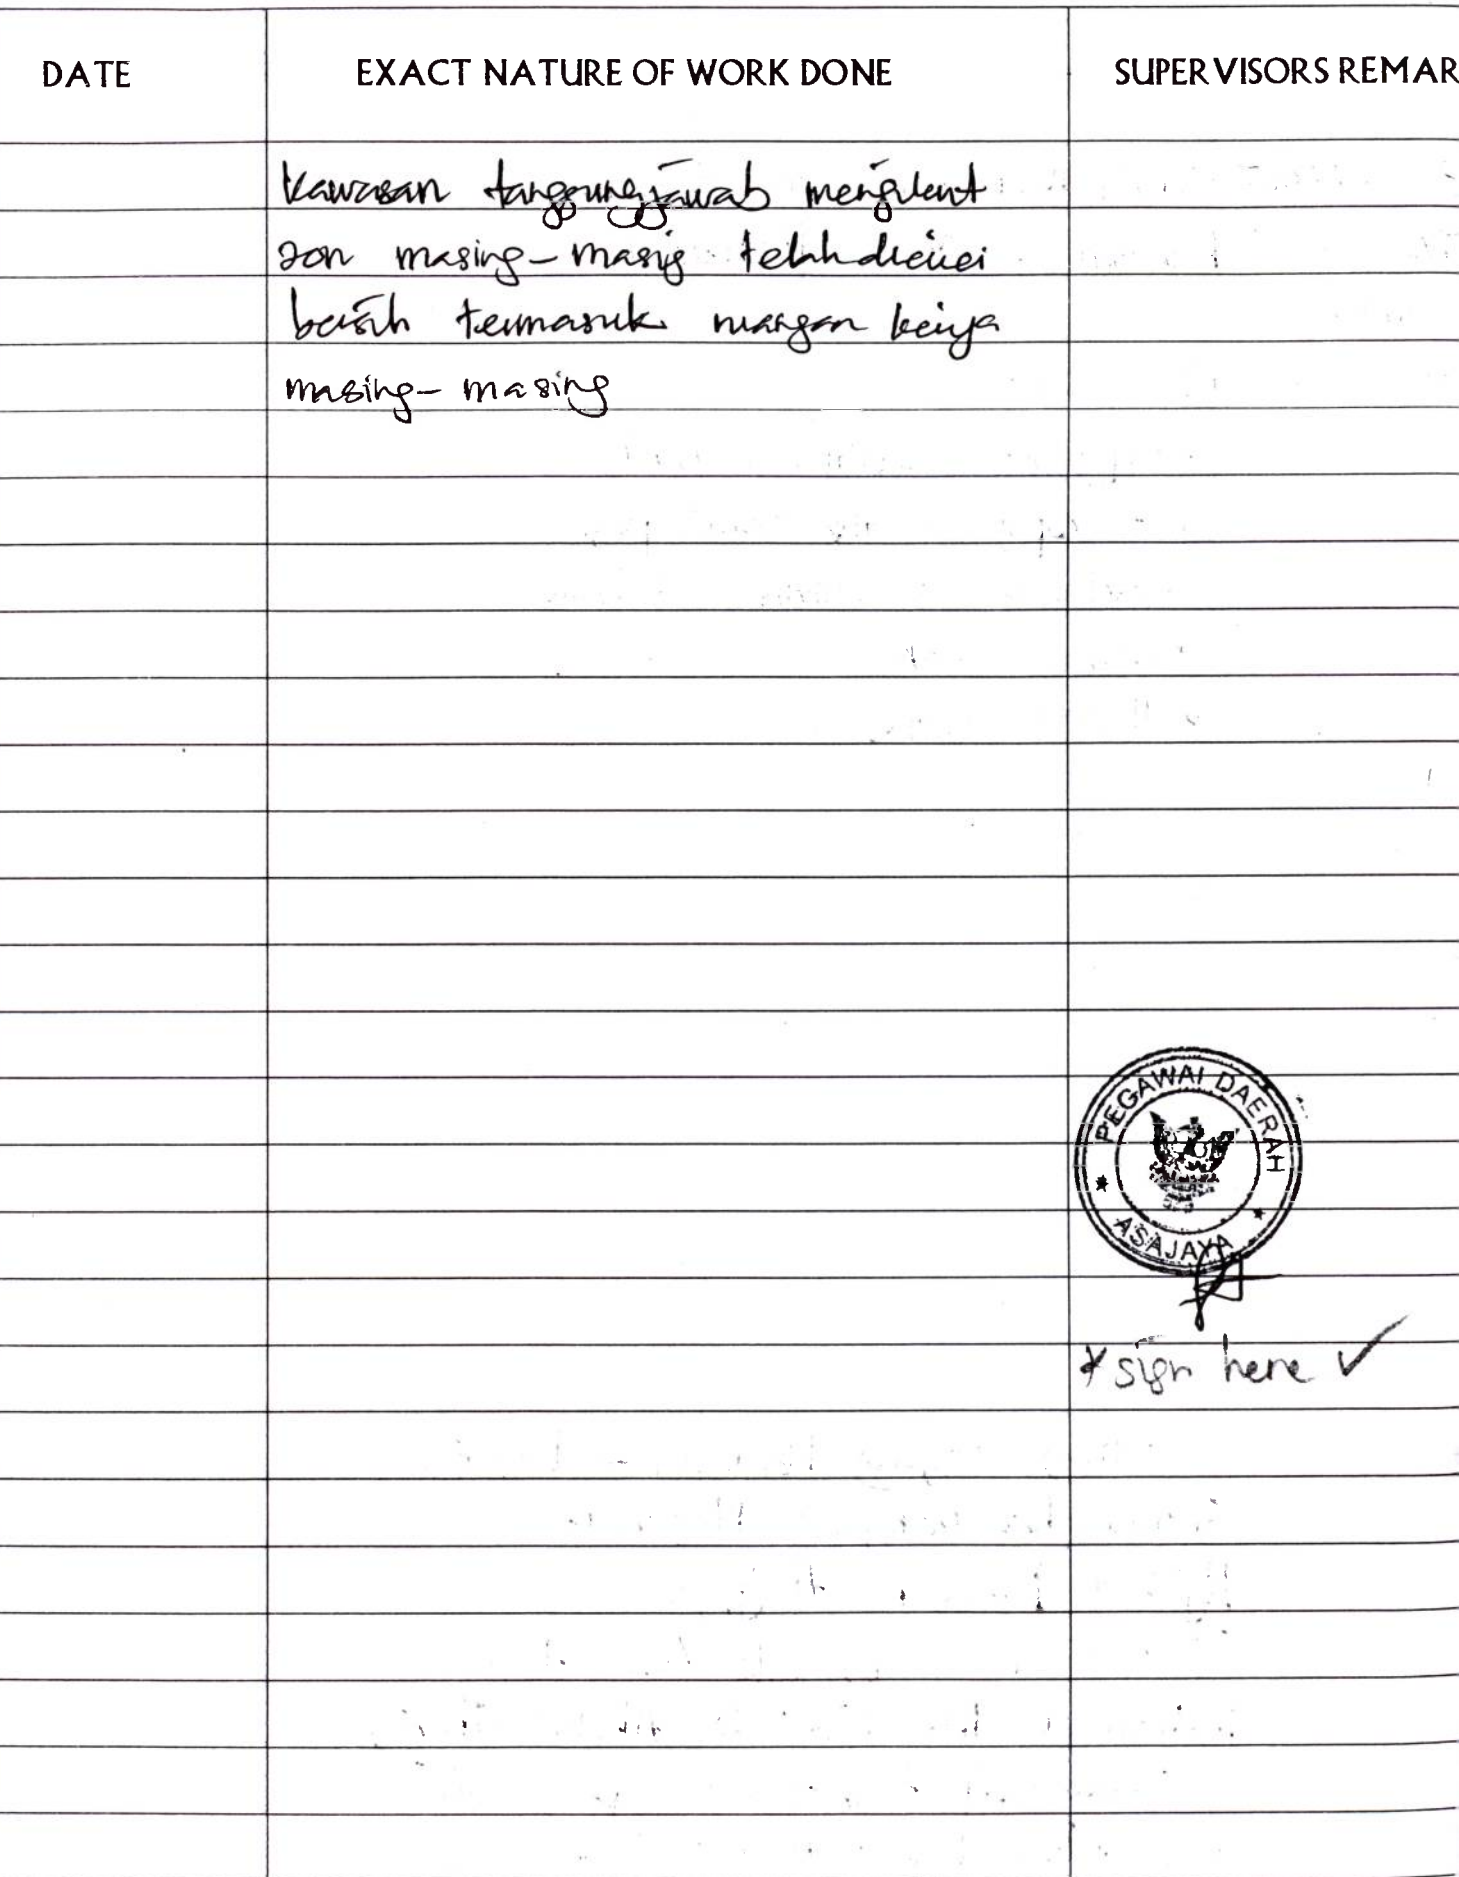 DATE EXACT NATURE OF WORK DONE SUPERVISORS REMAR
Kawasan tanggungjawab mengikut
zon masing-masig telah dicuci
bersih termasuk ruangan kerja
masing-masing
PEGAWAI DAERAH
ASAJAYA
* sign here ✓